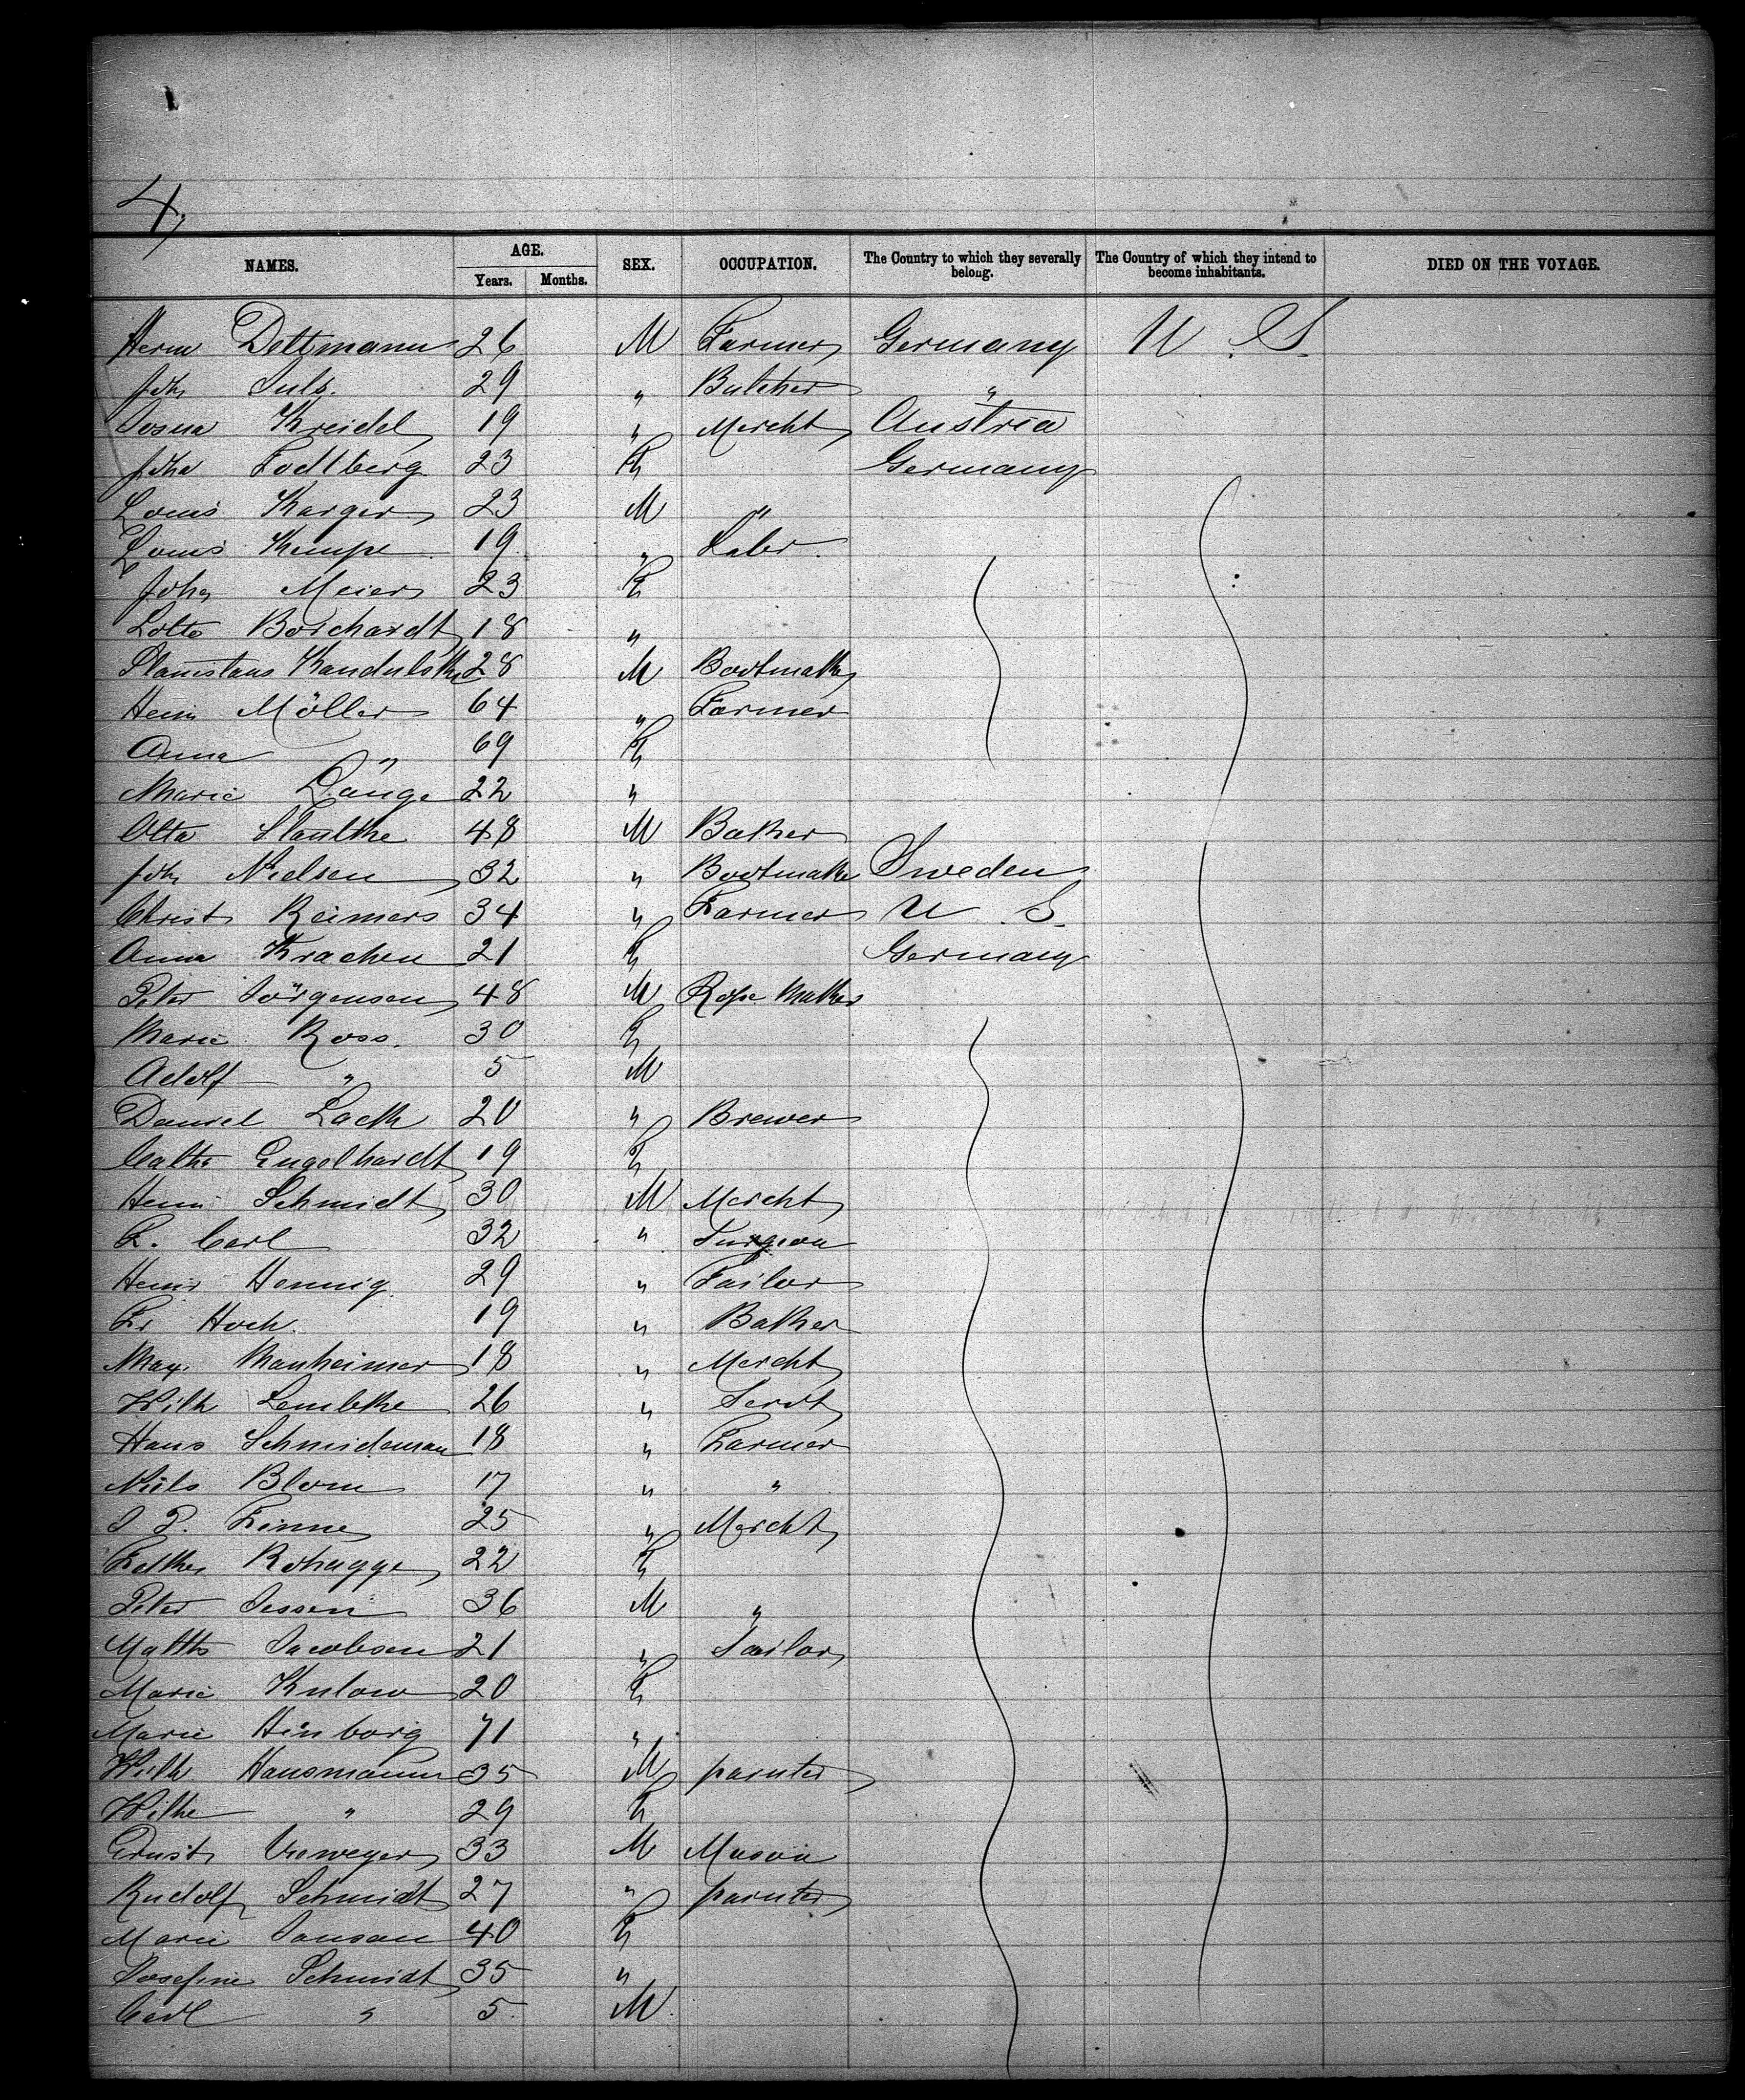 4,
NAMES. AGE. Years. Months. SEX. OCCUPATION. The Country to which they severally belong. The Country of which they intend to become inhabitants. DIED ON THE VOYAGE.
Herm Dettmann 26 M Farmer Germany U. S.
Joh Suls. 29 " Butcher "
Kreidel 19 " Mercht Austria
Joha 23 F Germany
Louis Karger 23 M "
Louis Kempe 19 " Labr.
Joha Meier 23 F
Lotte Borchardt 18 "
Stanislaus 28 M Bootmaker
Heinr Möller 64 " Farmer
Anna " 69 F
Marie Lange 22 "
Otto 48 M Baker
Joh Nielsen 32 " Bootmaker Sweden
Christ Reimers 34 " Farmer U. S.
Anna Krachen 21 F Germany
Peter Jörgensen 48 M Rope Maker
Marie Ross. 30 F
Adolf " 5 M
Daniel Lack 20 " Brewer
Cathe Engelhardt 19 F
Heinr Schmidt 30 M Mercht
F. Carl 32 " Surgeon
Heinr Hennig 29 " Tailor
Fr Hoch. 19 " Baker
Max Manheimer 18 " Mercht
Wilh Lembke 26 " Servt
Hans Schmideman 18 " Farmer
Niels Blom 17 " "
J P. Finne 25 " Mercht
Rohagge 22 F
Peter Jessen 36 M "
Matths Jacobsen 21 " Tailor
Marie Kulow 20 F
Marie Hinborg 71 "
Wilh Hausmann 35 M painter
Wilhe " 29 F
Ernst 33 M Mason
Rudolf Schmidt 27 " painter
Marie Jansan 40 F
Josefine Schmidt 35 "
Carl " 5. M.